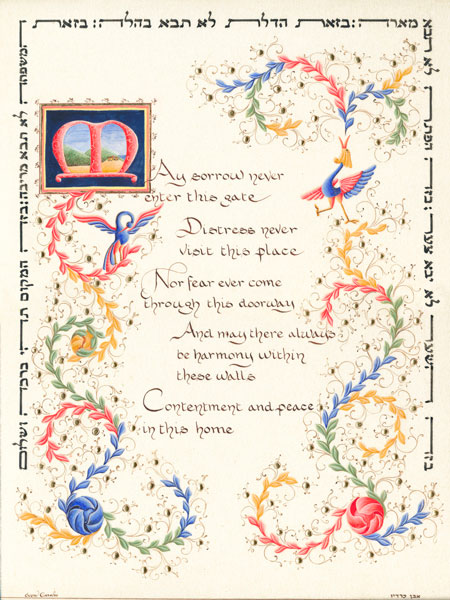 May sorrow never
enter this gate
Distress never
visit this place
Nor fear ever come
through this doorway
And may there always
be harmony within
these walls
Contentment and peace
in this home
בזה השער לא יבא צער : בזה לא תבא
מארה : בזאת הדלת לא תבא בהלה : בזאת
המשפחה לא תבא מריבה : בזה המקום תהי ברכה ושלום